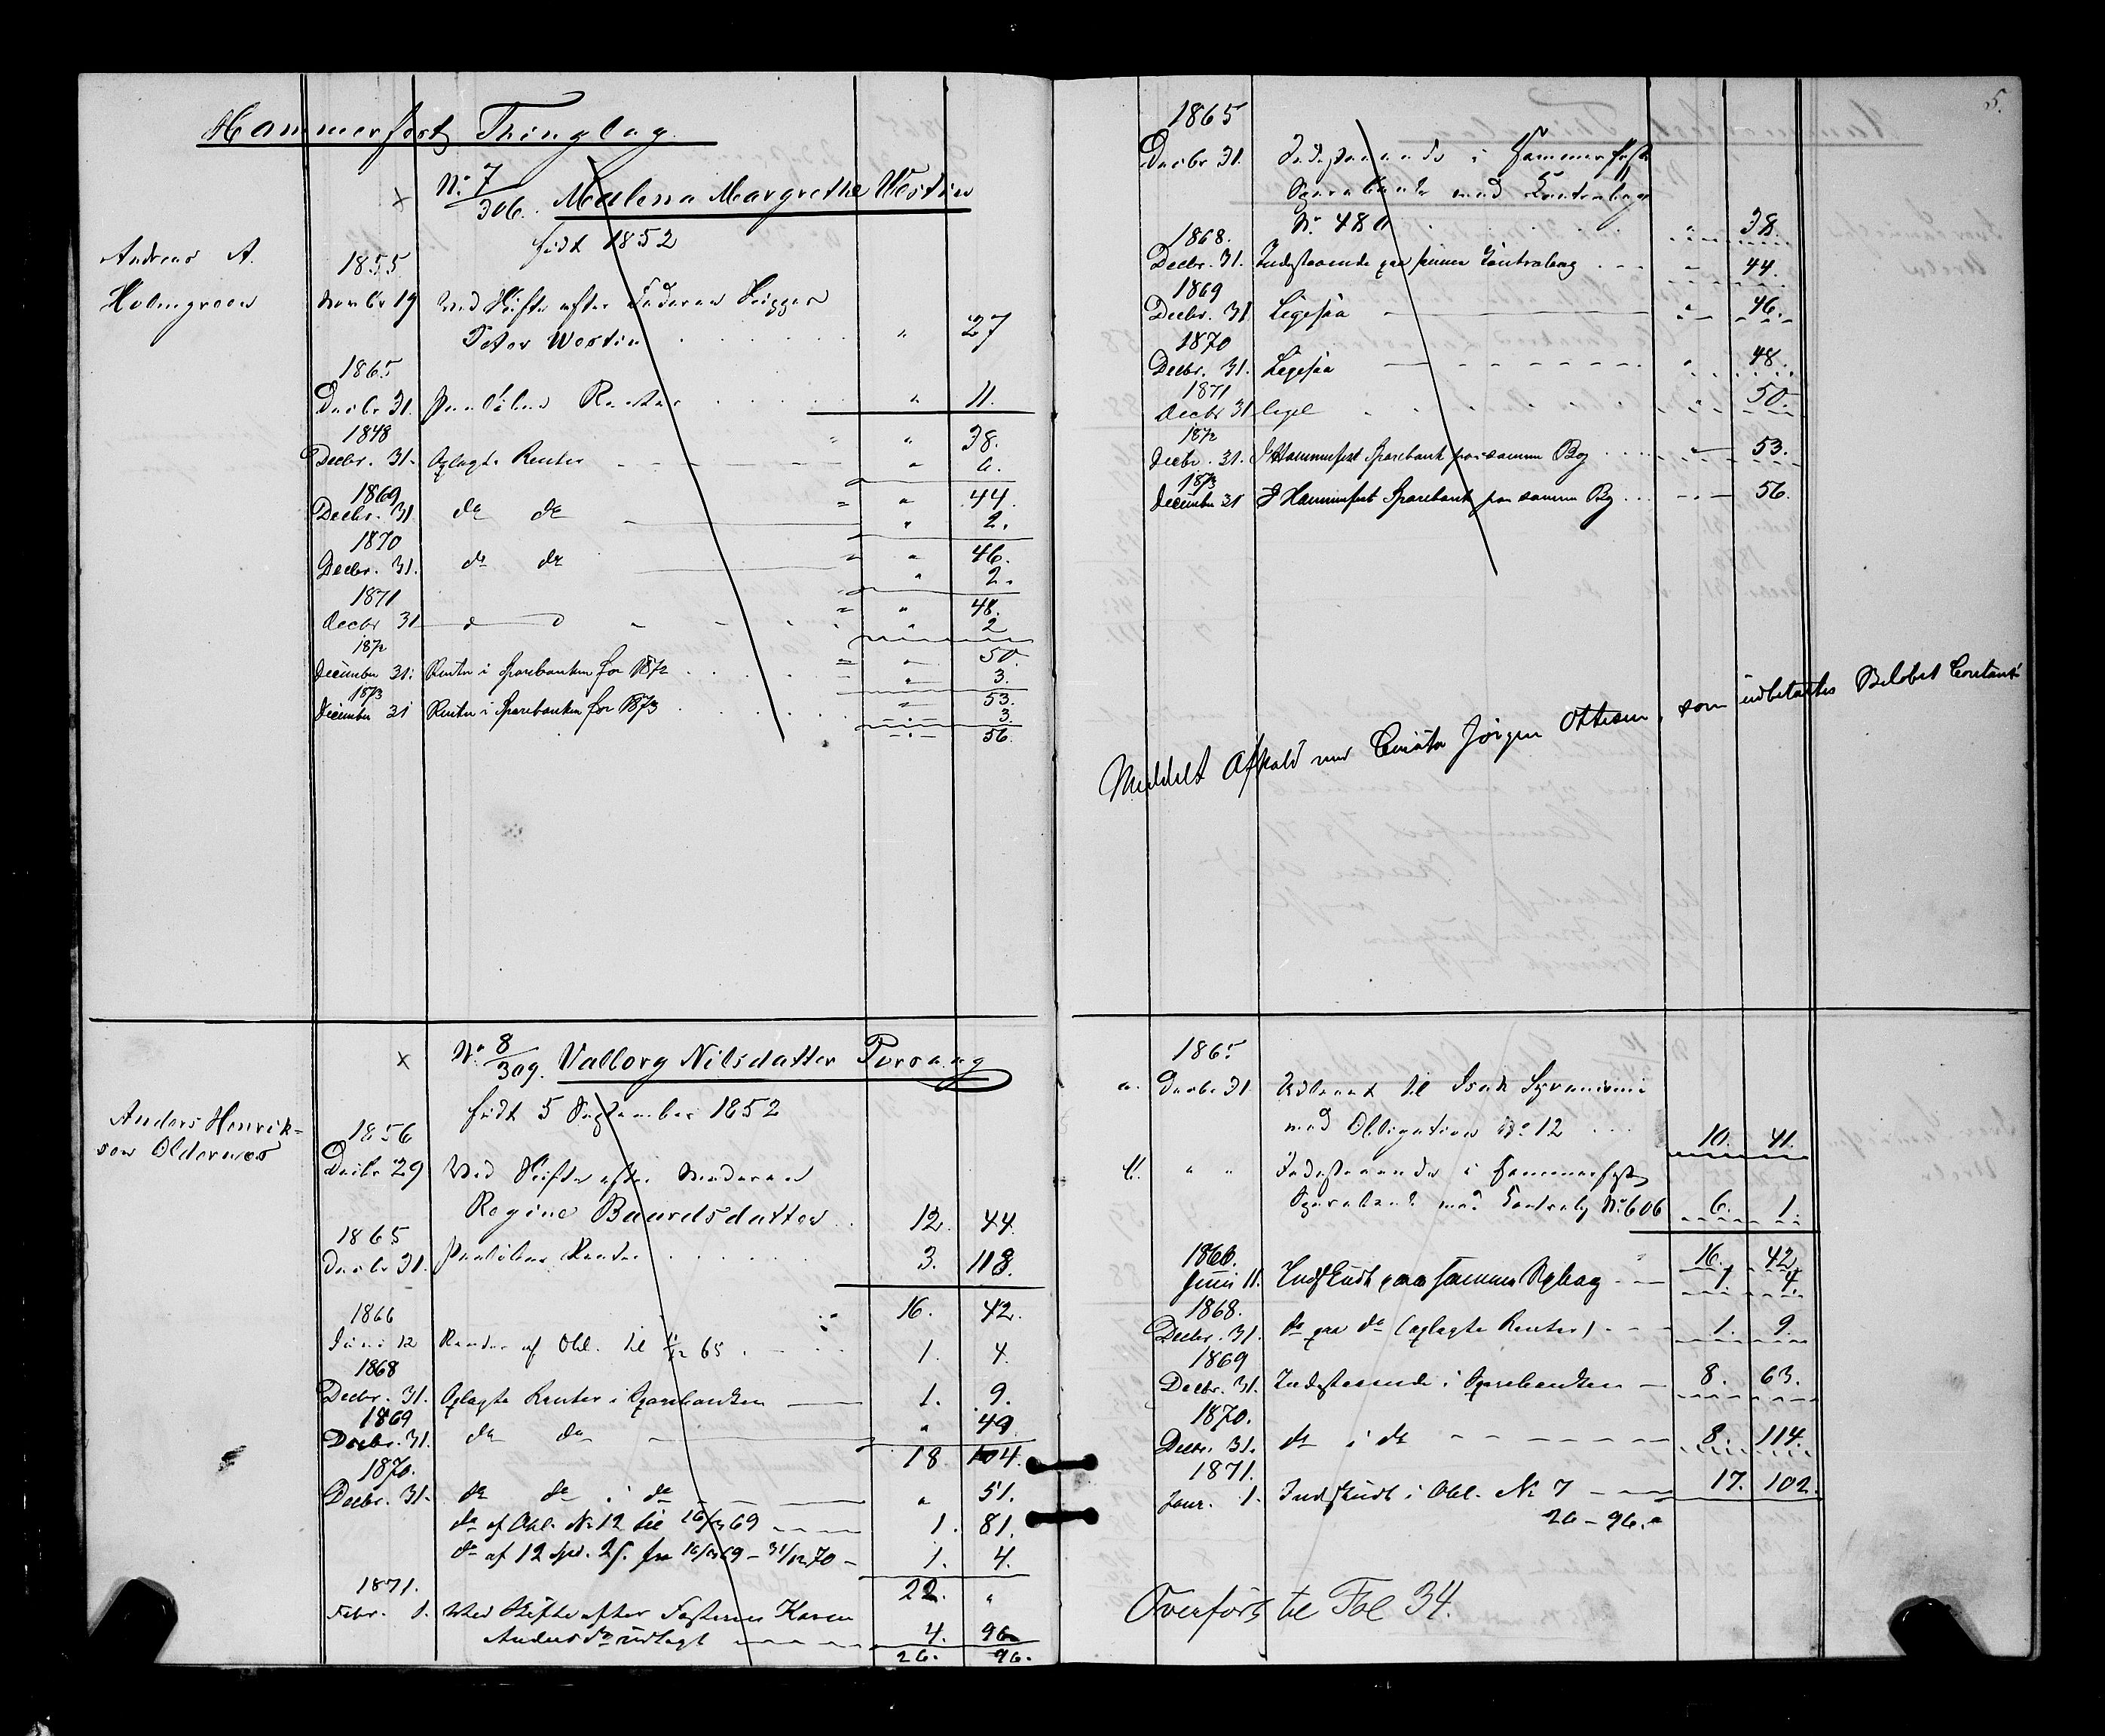 Hammerfest Thinglag.
× No 7/306. Malena Margrethe Westin
født 1852
Andreas A.
Holmgreen
1855
Novbr 19 Ved Skifte efter Faderen Trigger
Peter Westin . . . . . . " 27
1865
Decbr 31. paaløbne Renter . . . . " 11.
" 38.
1848
Decbr. 31. Oplagte Renter " 6.
" 44.
1869
Decbr. 31 do do " 2.
" 46.
1870
Decbr. 31. do do " 2.
" 48.
1871
Decbr 31 d o " 2
" 50.
1872
December 31. Renter i Sparebanken for 1872 . . . " 3.
" 53.
1873
December 31 Renter i Sparebanken for 1873 . . . 3.
56.
× No 8/309. Valborg Nilsdatter Porsang
født 5 September 1852
Anders Henrik-
sen Oldernæs
1856
Decbr 29 Ved Skifte efter Moderen
Regine Baardsdatter . . 12. 44.
1865
Decbr 31. paaløbne Renter . . . . 3. 118.
16. 42.
1866
Juni 12 Renter af Obl. til 11/12 65 . 1. 4.
1868
Decbr. 31. Oplagte Renter i Sparebanken 1. 9.
1869
Decbr. 31. do do " 49.
18. 104.
1870.
Decbr. 31. do do i do " 51.
do af Obl. No 12 til 16/12 69 1. 81.
do af 12 Spd. 2 /. fra 16/12 69 – 31/12 70 – 1. 4.
22. "
1871.
Febr. 1. Ved Skifte efter Fasteren Karen
Andersdr. udlagt 4. 96
26. 96.
5.
1865
Decbr 31. Indestaaende i Hammerfest
Sparebank med Contrabog
No 480 . . . . . . " 38.
1868.
Decbr. 31. Indestaaende paa samme Contrabog . . . " 44.
1869
Decbr. 31. Ligesaa " 46.
1870
Decbr. 31. Ligesaa " 48.
1871
Decbr 31 ligel . . . . . . 50.
1872
Decbr. 31. I Hammerfest Sparebank paa samme Bog . . . " 53.
1873
December 31 I Hammerfest Sparebank paa samme Bog . . . 56.
Meddelt Afkald med Curator Jørgen Ottesen, som udbetaltes Beløbet Contant
1865
a. Decbr 31 Udlaant til
med Obligation No 12 . . . 10. 41.
b. " " Indestaaende i Hammerfest
Sparebank med Contrabog No 606 6. 1.
16. 42.
1866.
Juni 11. Indskudt paa samme Spbog 1. 4.
1868.
Decbr. 31. do paa do (oplagte Renter) 1. 9.
1869
Decbr. 31. Indestaaende i Sparebanken 8. 63.
1870.
Decbr. 31. do i do 8. 114.
1871.
Janr. 1. Indskudt i Obl. No 7 17. 102.
26 – 96.
Overført til Fol 34.